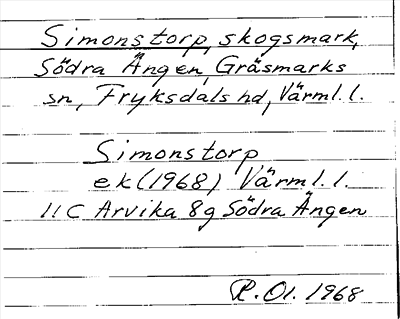 Simonstorp, skogsmark,
Södra Ängen, Gräsmarks
sn, Fryksdals hd, Värml. l.
Simonstorp
ek (1968) Värml. l.
11 C Arvika 8g Södra Ängen
R. Ol. 1968